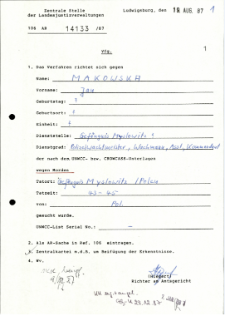 Zentrale Stelle
der Landesjustizverwaltungen
Ludwigsburg, den 18. AUG. 87
1
108 AR 14133 /87
Vfg.
1
1. Das Verfahren richtet sich gegen
Name: MAKOWSKA
Vorname: Jan
Geburtstag: ?
Geburtsort: ?
Einheit: ?
Dienststelle: Gefängnis Myslowitz
Dienstgrad:
der nach den UNWCC- bzw. CROWCASS-Unterlagen
wegen Mordes
Tatort: Gefängnis Myslowitz / Polen
Tatzeit: 42-45
von Pol.
gesucht wurde.
UNWCC-List Serial No: –
2. Als AR-Sache in Ref. 108 eintragen.
3. Zentralkartei m.d.B. um Beifügung der Erkenntnisse.
4. Wv.
Richter am Amtsgericht